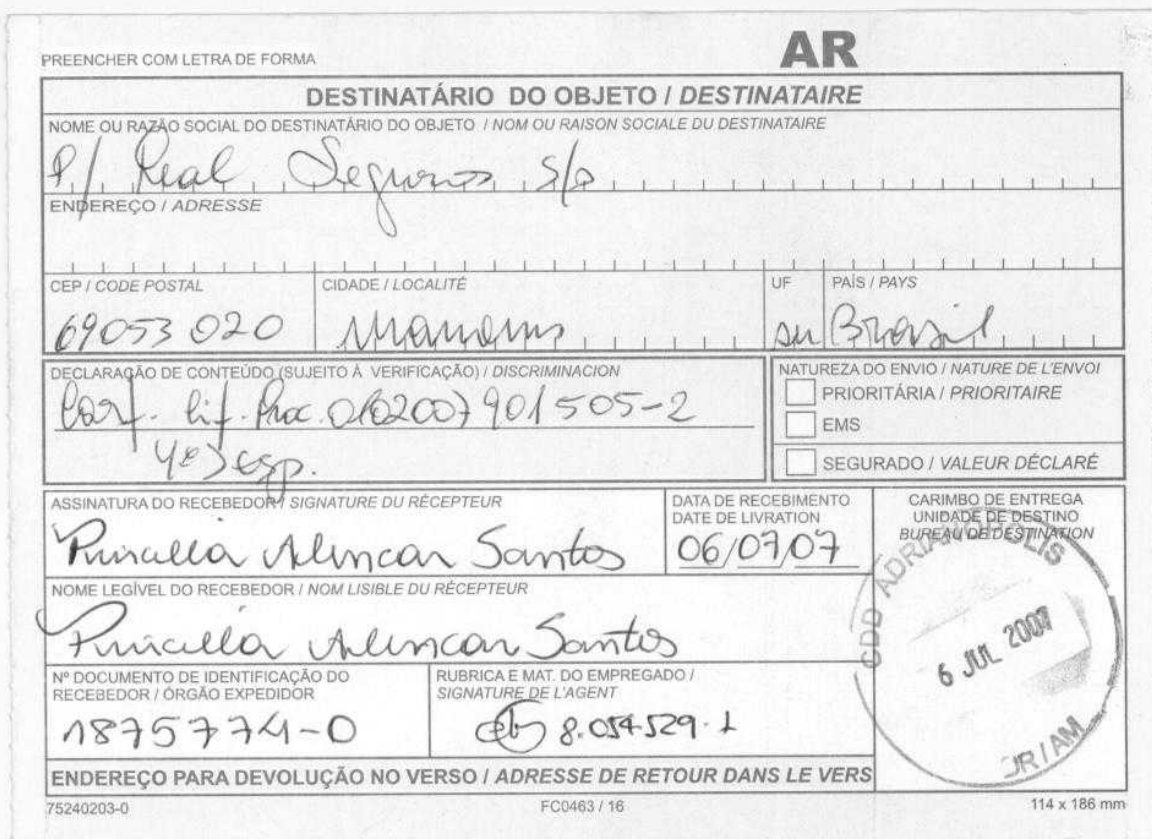 PREENCHER COM LETRA DE FORMA
AR
DESTINATÁRIO DO OBJETO / DESTINATAIRE
NOME OU RAZÃO SOCIAL DO DESTINATÁRIO DO OBJETO / NOM OU RAISON SOCIALE DU DESTINATAIRE
P/ Real Seguros S/A
ENDEREÇO / ADRESSE
CEP / CODE POSTAL
CIDADE / LOCALITÉ
UF
PAÍS / PAYS
69053 020
Manaus
Brasil
DECLARAÇÃO DE CONTEÚDO (SUJEITO À VERIFICAÇÃO) / DISCRIMINACION
NATUREZA DO ENVIO / NATURE DE L'ENVOI
PRIORITÁRIA / PRIORITAIRE
EMS
SEGURADO / VALEUR DÉCLARÉ
Proc.
ASSINATURA DO RECEBEDOR / SIGNATURE DU RÉCEPTEUR
Priscilla Alencar Santos
DATA DE RECEBIMENTO
DATE DE LIVRATION
06/07/07
CARIMBO DE ENTREGA
UNIDADE DE DESTINO
BUREAU DE DESTINATION
CDD ADRIANÓPOLIS
6 JUL 2007
DR/AM
NOME LEGÍVEL DO RECEBEDOR / NOM LISIBLE DU RÉCEPTEUR
Priscilla Alencar Santos
Nº DOCUMENTO DE IDENTIFICAÇÃO DO
RECEBEDOR / ÓRGÃO EXPEDIDOR
1875774-0
RUBRICA E MAT. DO EMPREGADO /
SIGNATURE DE L'AGENT
8.054.529-1
ENDEREÇO PARA DEVOLUÇÃO NO VERSO / ADRESSE DE RETOUR DANS LE VERS
75240203-0
FC0463 / 16
114 x 186 mm